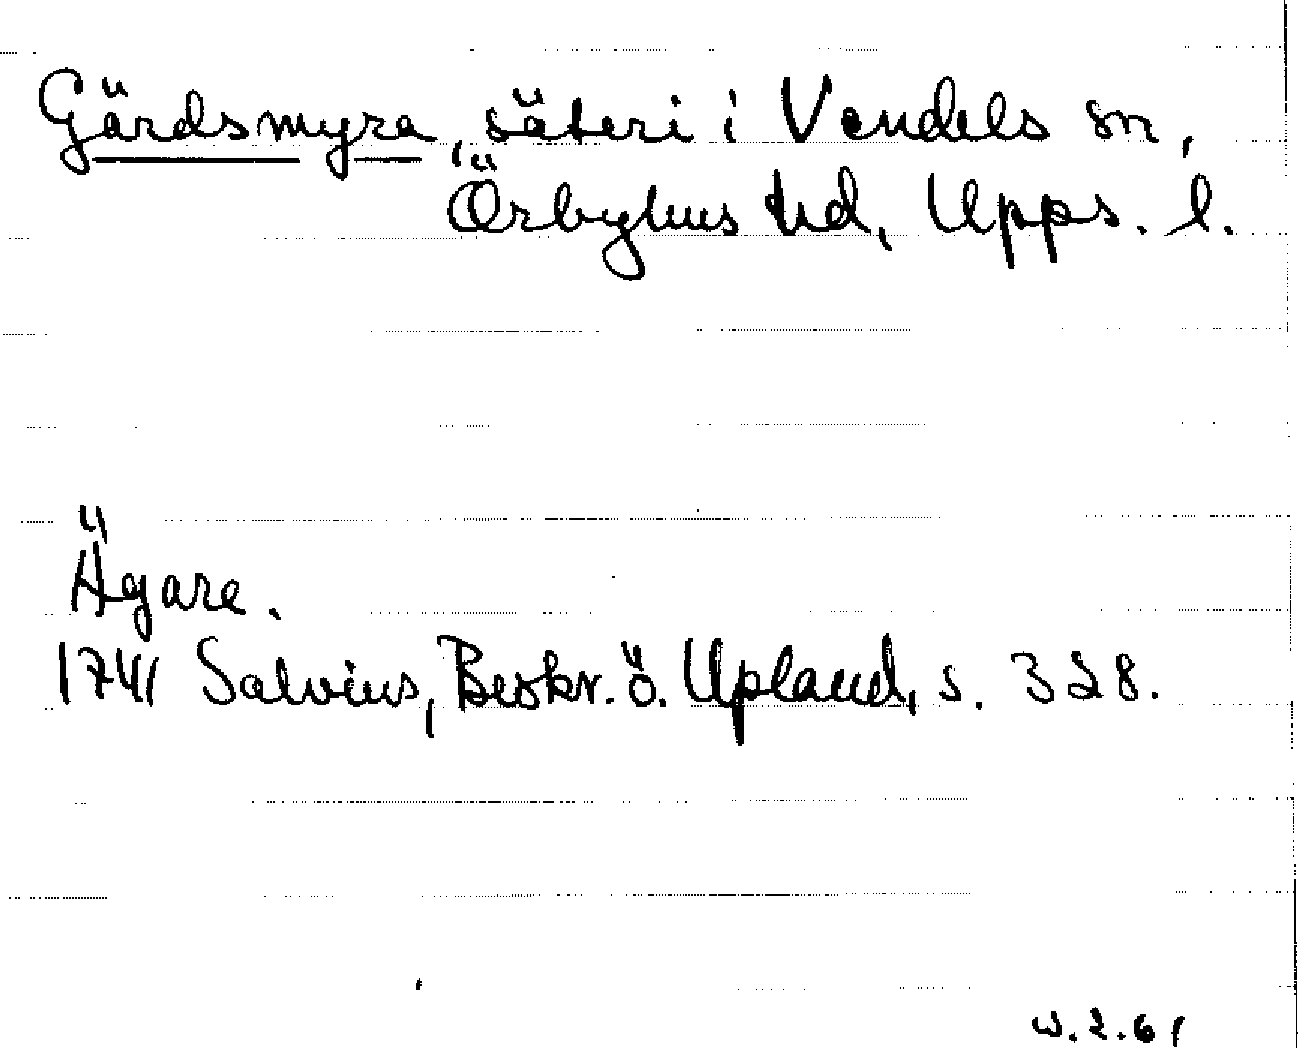 Gärdsmyra, säteri i Vendels sn,
Örbyhus hd, Upps. l.
Ägare.
1741 Salvius, Beskr. ö. Upland, s. 328.
w.2.61